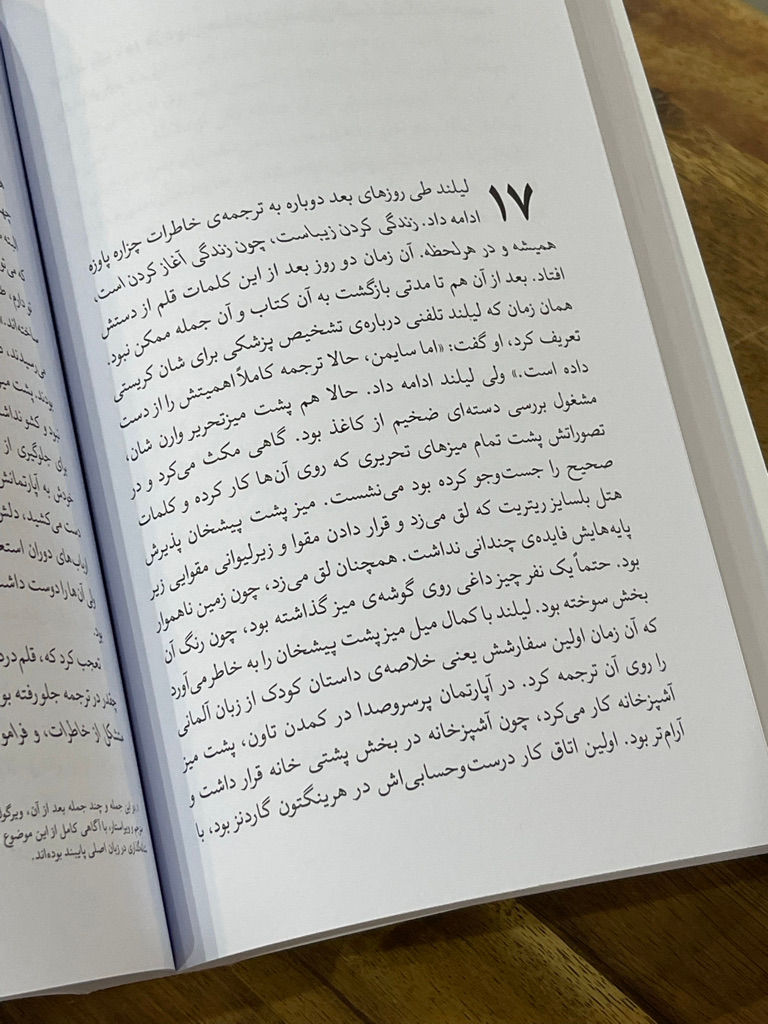 ۱۷
لیلند طی روزهای بعد دوباره به ترجمه‌ی خاطرات چزاره پاوزه
ادامه داد. زندگی کردن زیباست، چون زندگی آغاز کردن است،
همیشه و در هرلحظه. آن زمان دو روز بعد از این کلمات قلم از دستش
افتاد. بعد از آن هم تا مدتی بازگشت به آن کتاب و آن جمله ممکن نبود.
همان زمان که لیلند تلفنی درباره‌ی تشخیص پزشکی برای شان کریستی
تعریف کرد، او گفت: «اما سایمن، حالا ترجمه کاملاً اهمیتش را از دست
داده است.» ولی لیلند ادامه داد. حالا هم پشت میزتحریر وارن شان،
مشغول بررسی دسته‌ای ضخیم از کاغذ بود. گاهی مکث می‌کرد و در
تصوراتش پشت تمام میزهای تحریری که روی آن‌ها کار کرده و کلمات
صحیح را جست‌وجو کرده بود می‌نشست. میز پشت پیشخان پذیرش
هتل بلسایز ریتریت که لق می‌زد و قرار دادن مقوا و زیرلیوانی مقوایی زیر
پایه‌هایش فایده‌ی چندانی نداشت. همچنان لق می‌زد، چون زمین ناهموار
بود. حتماً یک نفر چیز داغی روی گوشه‌ی میز گذاشته بود، چون رنگ آن
بخش سوخته بود. لیلند با کمال میل میز پشت پیشخان را به خاطر می‌آورد
که آن زمان اولین سفارشش یعنی خلاصه‌ی داستان کودک از زبان آلمانی
را روی آن ترجمه کرد. در آپارتمان پرسروصدا در کمدن تاون، پشت میز
آشپزخانه کار می‌کرد، چون آشپزخانه در بخش پشتی خانه قرار داشت و
آرام‌تر بود. اولین اتاق کار درست‌وحسابی‌اش در هرینگتون گاردنز بود، با
که می‌تو
تو دارم،
ساخته‌اند.»
می‌رسیدند،
بودند. پشت میز
نبود و کشو نداش
برای جلوگیری از
خودش به آپارتمانش
دست می‌کشید، دلش
ارباب‌های دوران استعم
ولی آن‌ها را دوست داشت
بود.
تعجب کرد که، قلم درد
چقدر در ترجمه جلو رفته بو
متشکل از خاطرات، و فرامو
این جمله و چند جمله بعد از آن، ویرگول
مترجم و ویراستار، با آگاهی کامل از این موضوع
گذاری در زبان اصلی پایبند بوده‌اند.